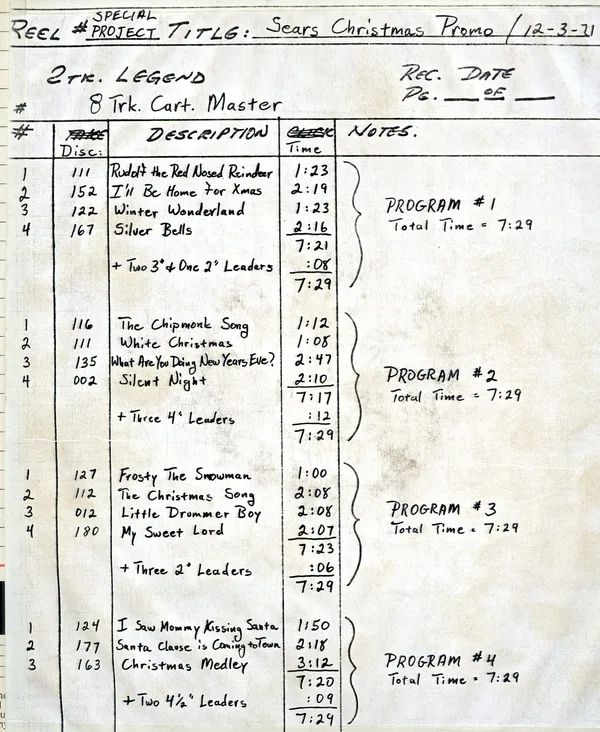 REEL # SPECIAL PROJECT TITLE: Sears Christmas Promo / 12-3-71
2TK. LEGEND REC. DATE
# 8 Trk. Cart. Master PG. ___ OF ___
# TAKE DESCRIPTION CLOCK NOTES.
Disc: Time
1 111 Rudolf the Red Nosed Reindeer 1:23
2 152 I'll Be Home for Xmas 2:19
3 122 Winter Wonderland 1:23
4 167 Silver Bells 2:16
7:21
+ Two 3" & One 2" Leaders :08
7:29
PROGRAM #1
Total Time = 7:29
1 116 The Chipmonk Song 1:12
2 111 White Christmas 1:08
3 135 What Are You Doing New Years Eve? 2:47
4 002 Silent Night 2:10
7:17
+ Three 4" Leaders :12
7:29
PROGRAM #2
Total Time = 7:29
1 127 Frosty The Snowman 1:00
2 112 The Christmas Song 2:08
3 012 Little Drummer Boy 2:08
4 180 My Sweet Lord 2:07
7:23
+ Three 2" Leaders :06
7:29
PROGRAM #3
Total Time = 7:29
1 124 I Saw Mommy Kissing Santa 1:50
2 177 Santa Clause is Coming to Town 2:18
3 163 Christmas Medley 3:12
7:20
+ Two 4½" Leaders :09
7:29
PROGRAM #4
Total Time = 7:29